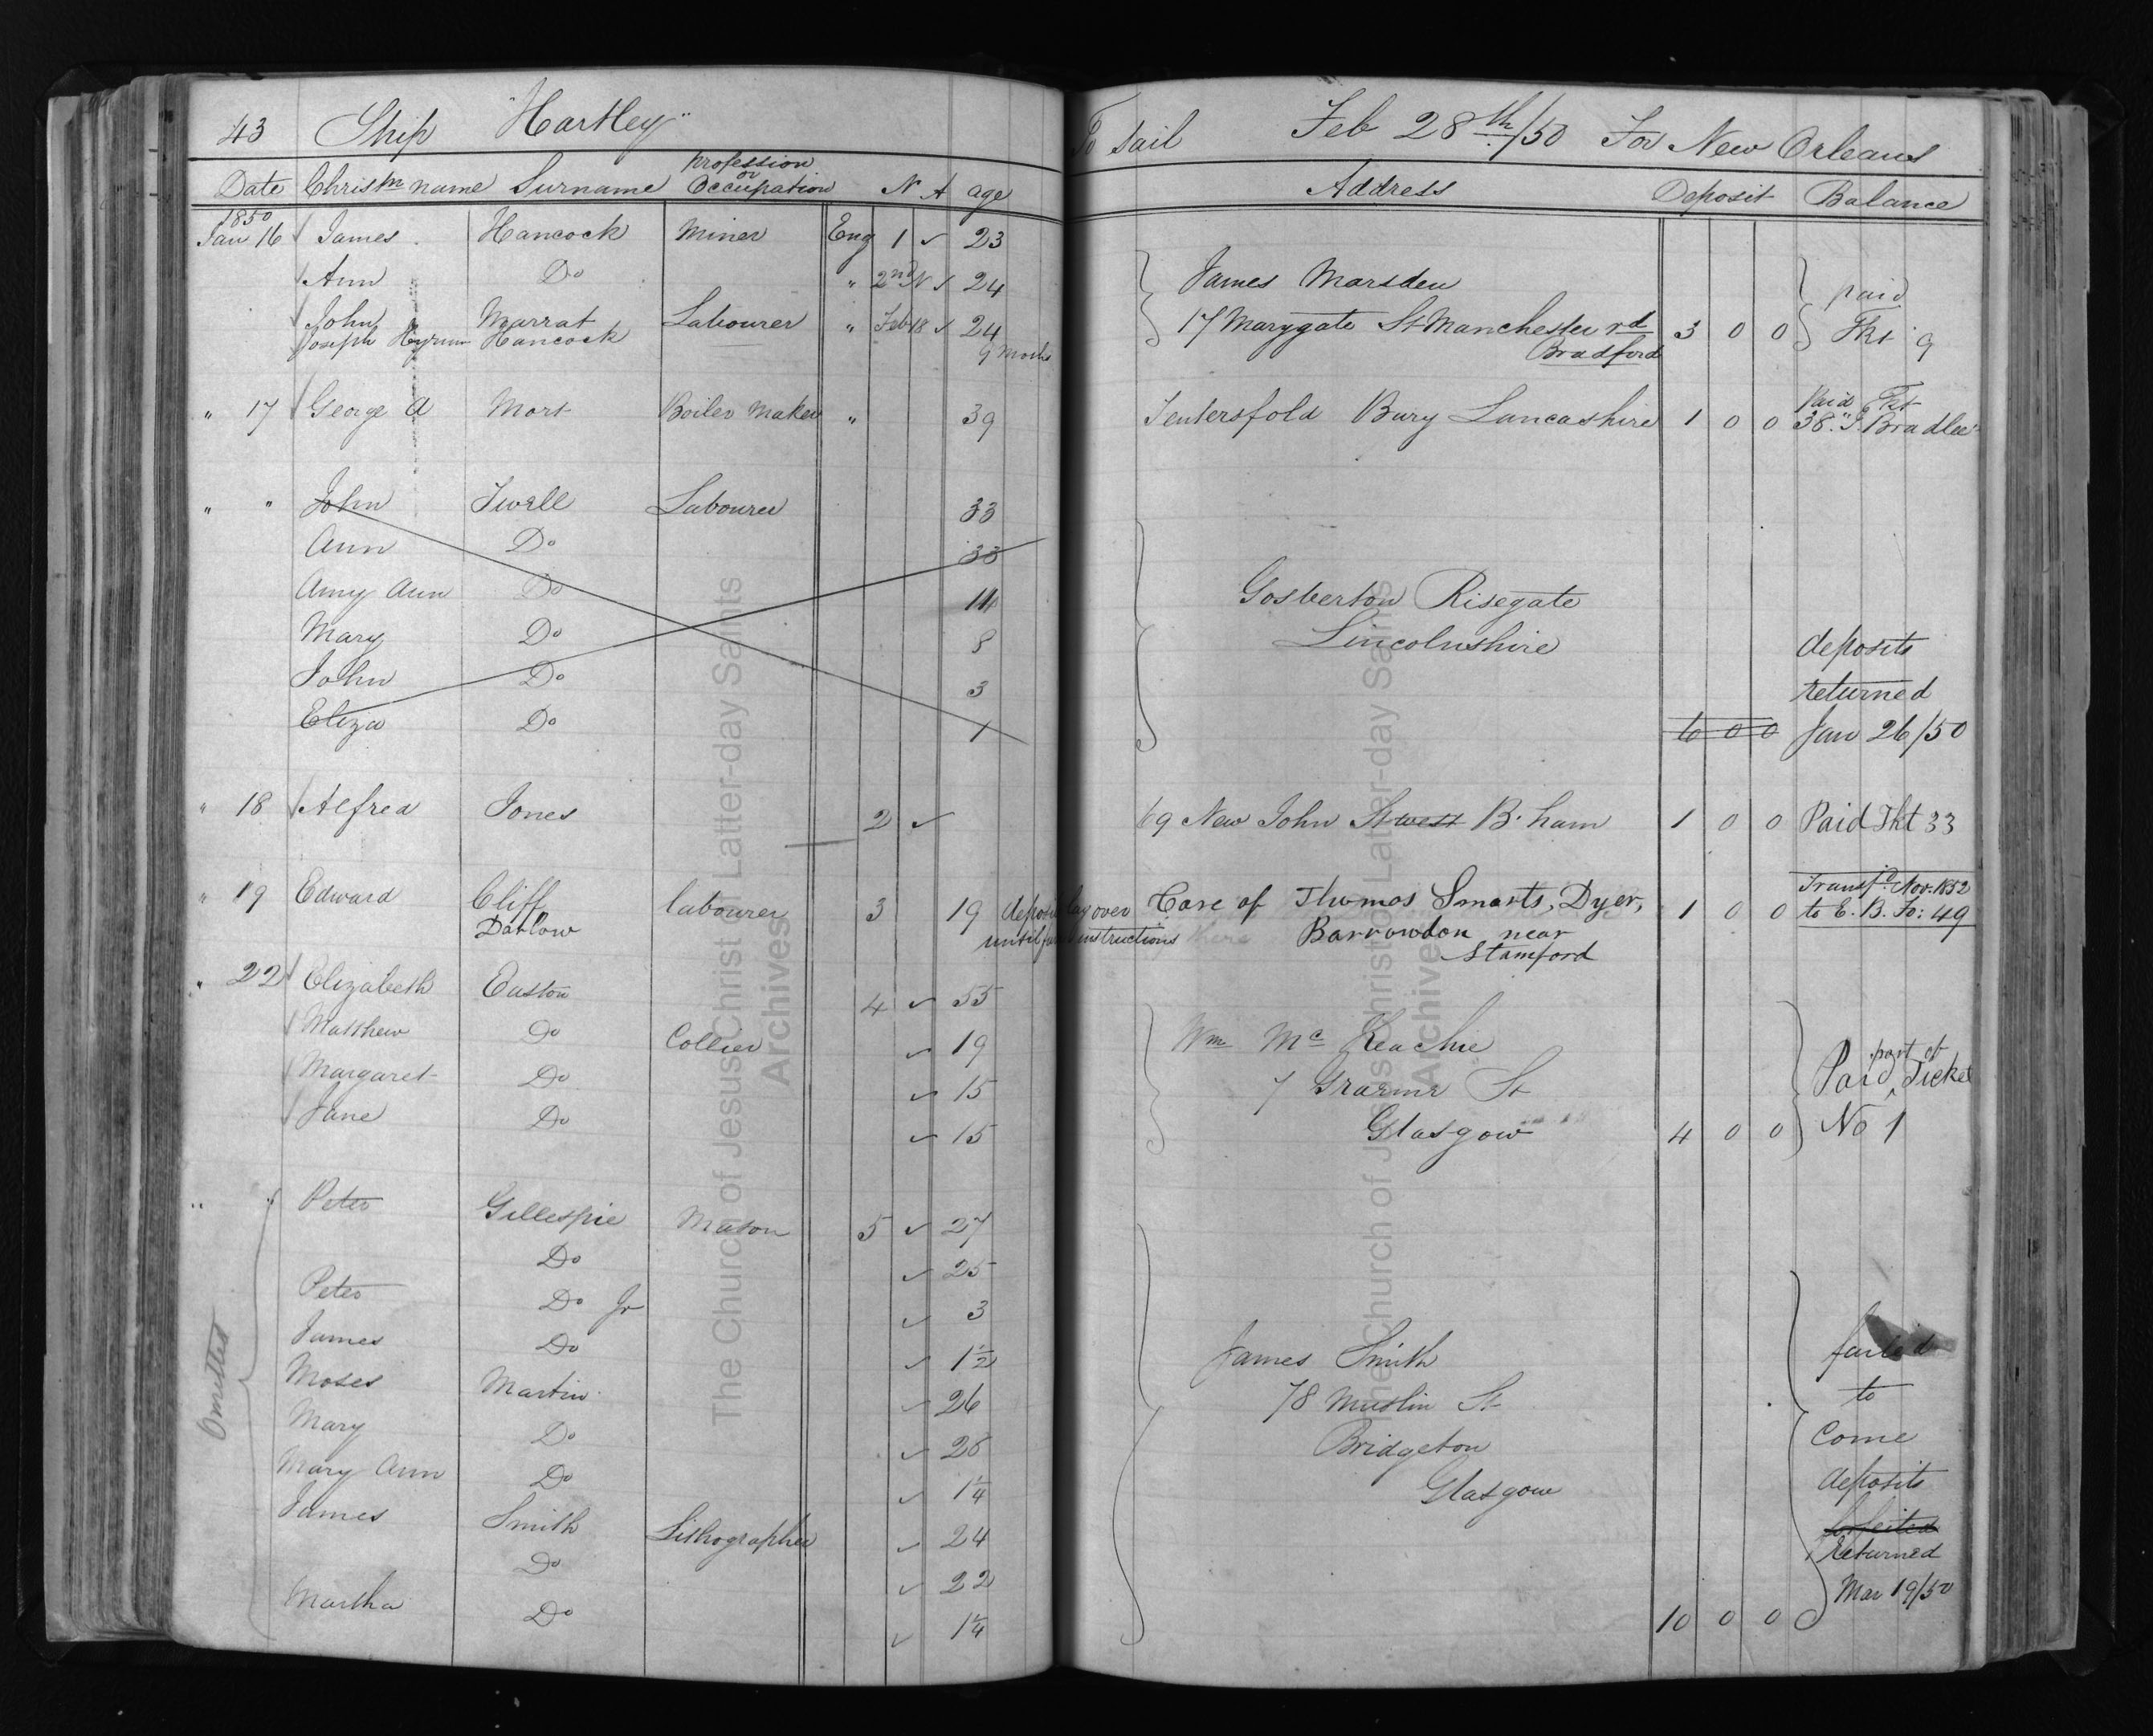 43 Ship "Hartley" To Sail Feb 28th/50 For New Orleans
Date Christn name Surname Profession or Occupation N A age Address Deposit Balance
1850
Jan 16 James Hancock Miner Eng 1 ✓ 23
Ann Do " 2nd N ✓ 24 James Marsden paid
John Marrat Labourer " Feb 18 ✓ 24 17 Marygate St Manchester rd 3 0 0 Tkt 9
Joseph Hyrum Hancock 9 Moths Bradford
" 17 George A Mort Boiler Maker " 39 Tentersfold Bury Lancashire 1 0 0 Paid Tkt
38. J. Bradlee
" " John Twell Labourer 33
Ann Do 33
Amy Ann Do 11 Gosberton Risegate
Mary Do 8 Lincolnshire deposits
John Do 3 returned
Eliza Do 1 6 0 0 Jan 26/50
" 18 Alfred Jones 2 ✓ 69 New John St west B'ham 1 0 0 Paid Tkt 33
" 19 Edward Cliff labourer 3 19 deposit lay over Care of Thomas Smarts, Dyer, 1 0 0 Transfd Nov. 1852
to E. B. Fo: 49
Darlow until instructions Barrowdon near
Stamford
" 22 Elizabeth Easton 4 ✓ 55
Matthew Do Collier ✓ 19 Wm Mc Keachie
Margaret Do ✓ 15 7 Graeme St Paid part of Ticket
Jane Do ✓ 15 Glasgow 4 0 0 No 1
" " Peter Gillespie Mason 5 ✓ 27
Do ✓ 25
Peter Do Jr ✓ 3
James Do ✓ 1½ James Smith failed
Moses Martin ✓ 26 78 Muslin St to
Mary Do ✓ 26 Bridgeton Come
Mary Ann Do ✓ 1¼ Glasgow deposits
James Smith Lithographer ✓ 24 forfeited
Do ✓ 22 Returned
Martha Do ✓ 1¼ 10 0 0 Mar 19/50
Omitted
The Church of Jesus Christ Latter-day Saints
Archives
The Church of Jesus Christ Latter-day Saints
Archives